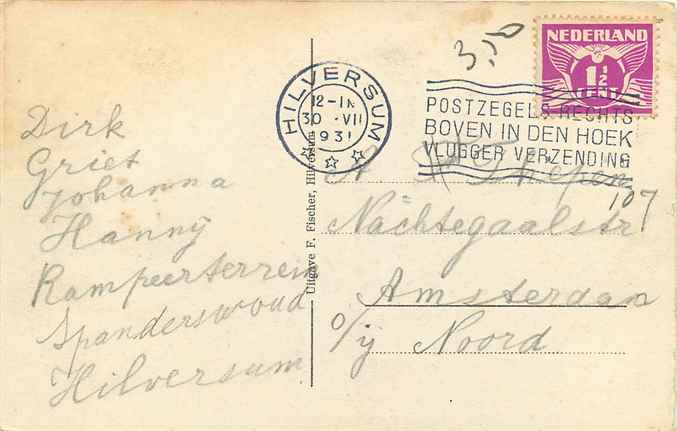 Dirk
Griet
Johanna
Hannÿ
Kampeerterrein
Spanderswoud
Hilversum
Uitgave F. Fischer, Hilversum
3,50
HILVERSUM
12-1N
30 .VII
1931
NEDERLAND
1½
CENT
POSTZEGELS RECHTS
BOVEN IN DEN HOEK
VLUGGER VERZENDING
A.
107
Nachtegaalstr
Amsterdam
o/ÿ Noord